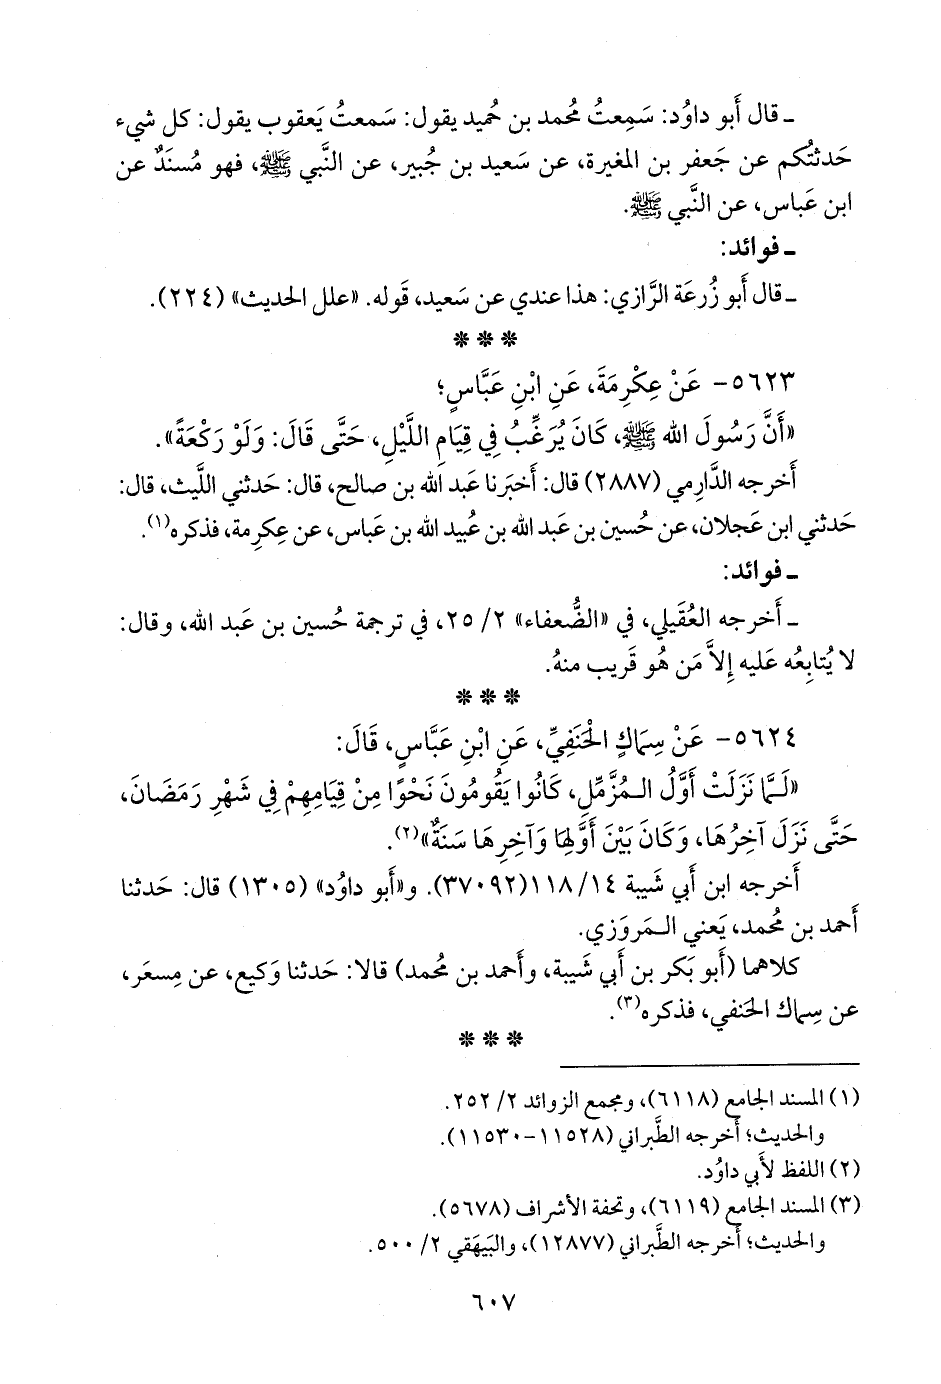 ـ قال أَبو داوُد: سَمِعتُ مُحمد بن حُميد يقول: سَمعتُ يَعقوب يقول: كل شيء
حَدثتُكم عن جَعفر بن المغيرة، عن سَعيد بن جُبير، عن النَّبي ﷺ، فهو مُسنَدٌ عن
ابن عَباس، عن النَّبي ﷺ.
ـ فوائد:
ـ قال أَبو زُرعَة الرَّازي: هذا عندي عن سَعيد، قَوله. «علل الحديث» (٢٢٤).
* * *
٥٦٢٣- عَنْ عِكْرِمَةَ، عَنِ ابْنِ عَبَّاسٍ؛
«أَنَّ رَسُولَ الله ﷺ، كَانَ يُرَغِّبُ فِي قِيَامِ اللَّيْلِ، حَتَّى قَالَ: وَلَوْ رَكْعَةً».
أَخرجه الدَّارِمي (٢٨٨٧) قال: أَخبَرنا عَبد الله بن صالح، قال: حَدثني اللَّيث، قال:
حَدثني ابن عَجلان، عن حُسين بن عَبد الله بن عُبيد الله بن عَباس، عن عِكرِمة، فذكره(١).
ـ فوائد:
ـ أَخرجه العُقَيلي، في «الضُّعفاء» ٢/ ٢٥، في ترجمة حُسين بن عَبد الله، وقال:
لا يُتابِعُه عَليه إِلاَّ مَن هُو قَريب منهُ.
* * *
٥٦٢٤- عَنْ سِمَاكٍ الْحَنَفِيِّ، عَنِ ابْنِ عَبَّاسٍ، قَالَ:
«لَـمَّا نَزَلَتْ أَوَّلُ الـمُزَّمِّلِ، كَانُوا يَقُومُونَ نَحْوًا مِنْ قِيَامِهِمْ فِي شَهْرِ رَمَضَانَ،
حَتَّى نَزَلَ آخِرُهَا، وَكَانَ بَيْنَ أَوَّلِهَا وَآخِرِهَا سَنَةٌ»(٢).
أَخرجه ابن أَبي شَيبة ١٤/ ١١٨(٣٧٠٩٢). و«أَبو داوُد» (١٣٠٥) قال: حَدثنا
أَحمد بن مُحمد، يَعني الـمَروَزي.
كلاهما (أَبو بَكر بن أَبي شَيبة، وأَحمد بن مُحمد) قالا: حَدثنا وَكيع، عن مِسعَر،
عن سِماك الحَنفي، فذكره(٣).
* * *
(١) المسند الجامع (٦١١٨)، ومجمع الزوائد ٢/ ٢٥٢.
والحديث؛ أَخرجه الطَّبراني (١١٥٢٨-١١٥٣٠).
(٢) اللفظ لأَبي داوُد.
(٣) المسند الجامع (٦١١٩)، وتحفة الأشراف (٥٦٧٨).
والحديث؛ أَخرجه الطَّبراني (١٢٨٧٧)، والبَيهَقي ٢/ ٥٠٠.
٦٠٧